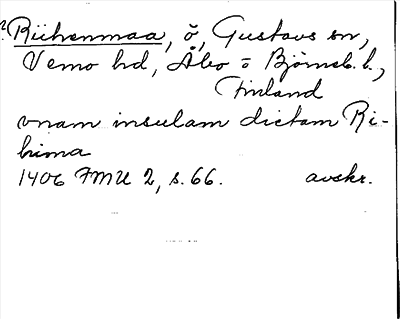 ? Riihenmaa, ö, Gustavs sn,
Vemo hd, Åbo = Björneb. l.,
Finland
vnam insulam dictam Ri-
hima
1406 FMU 2, s. 66. avskr.